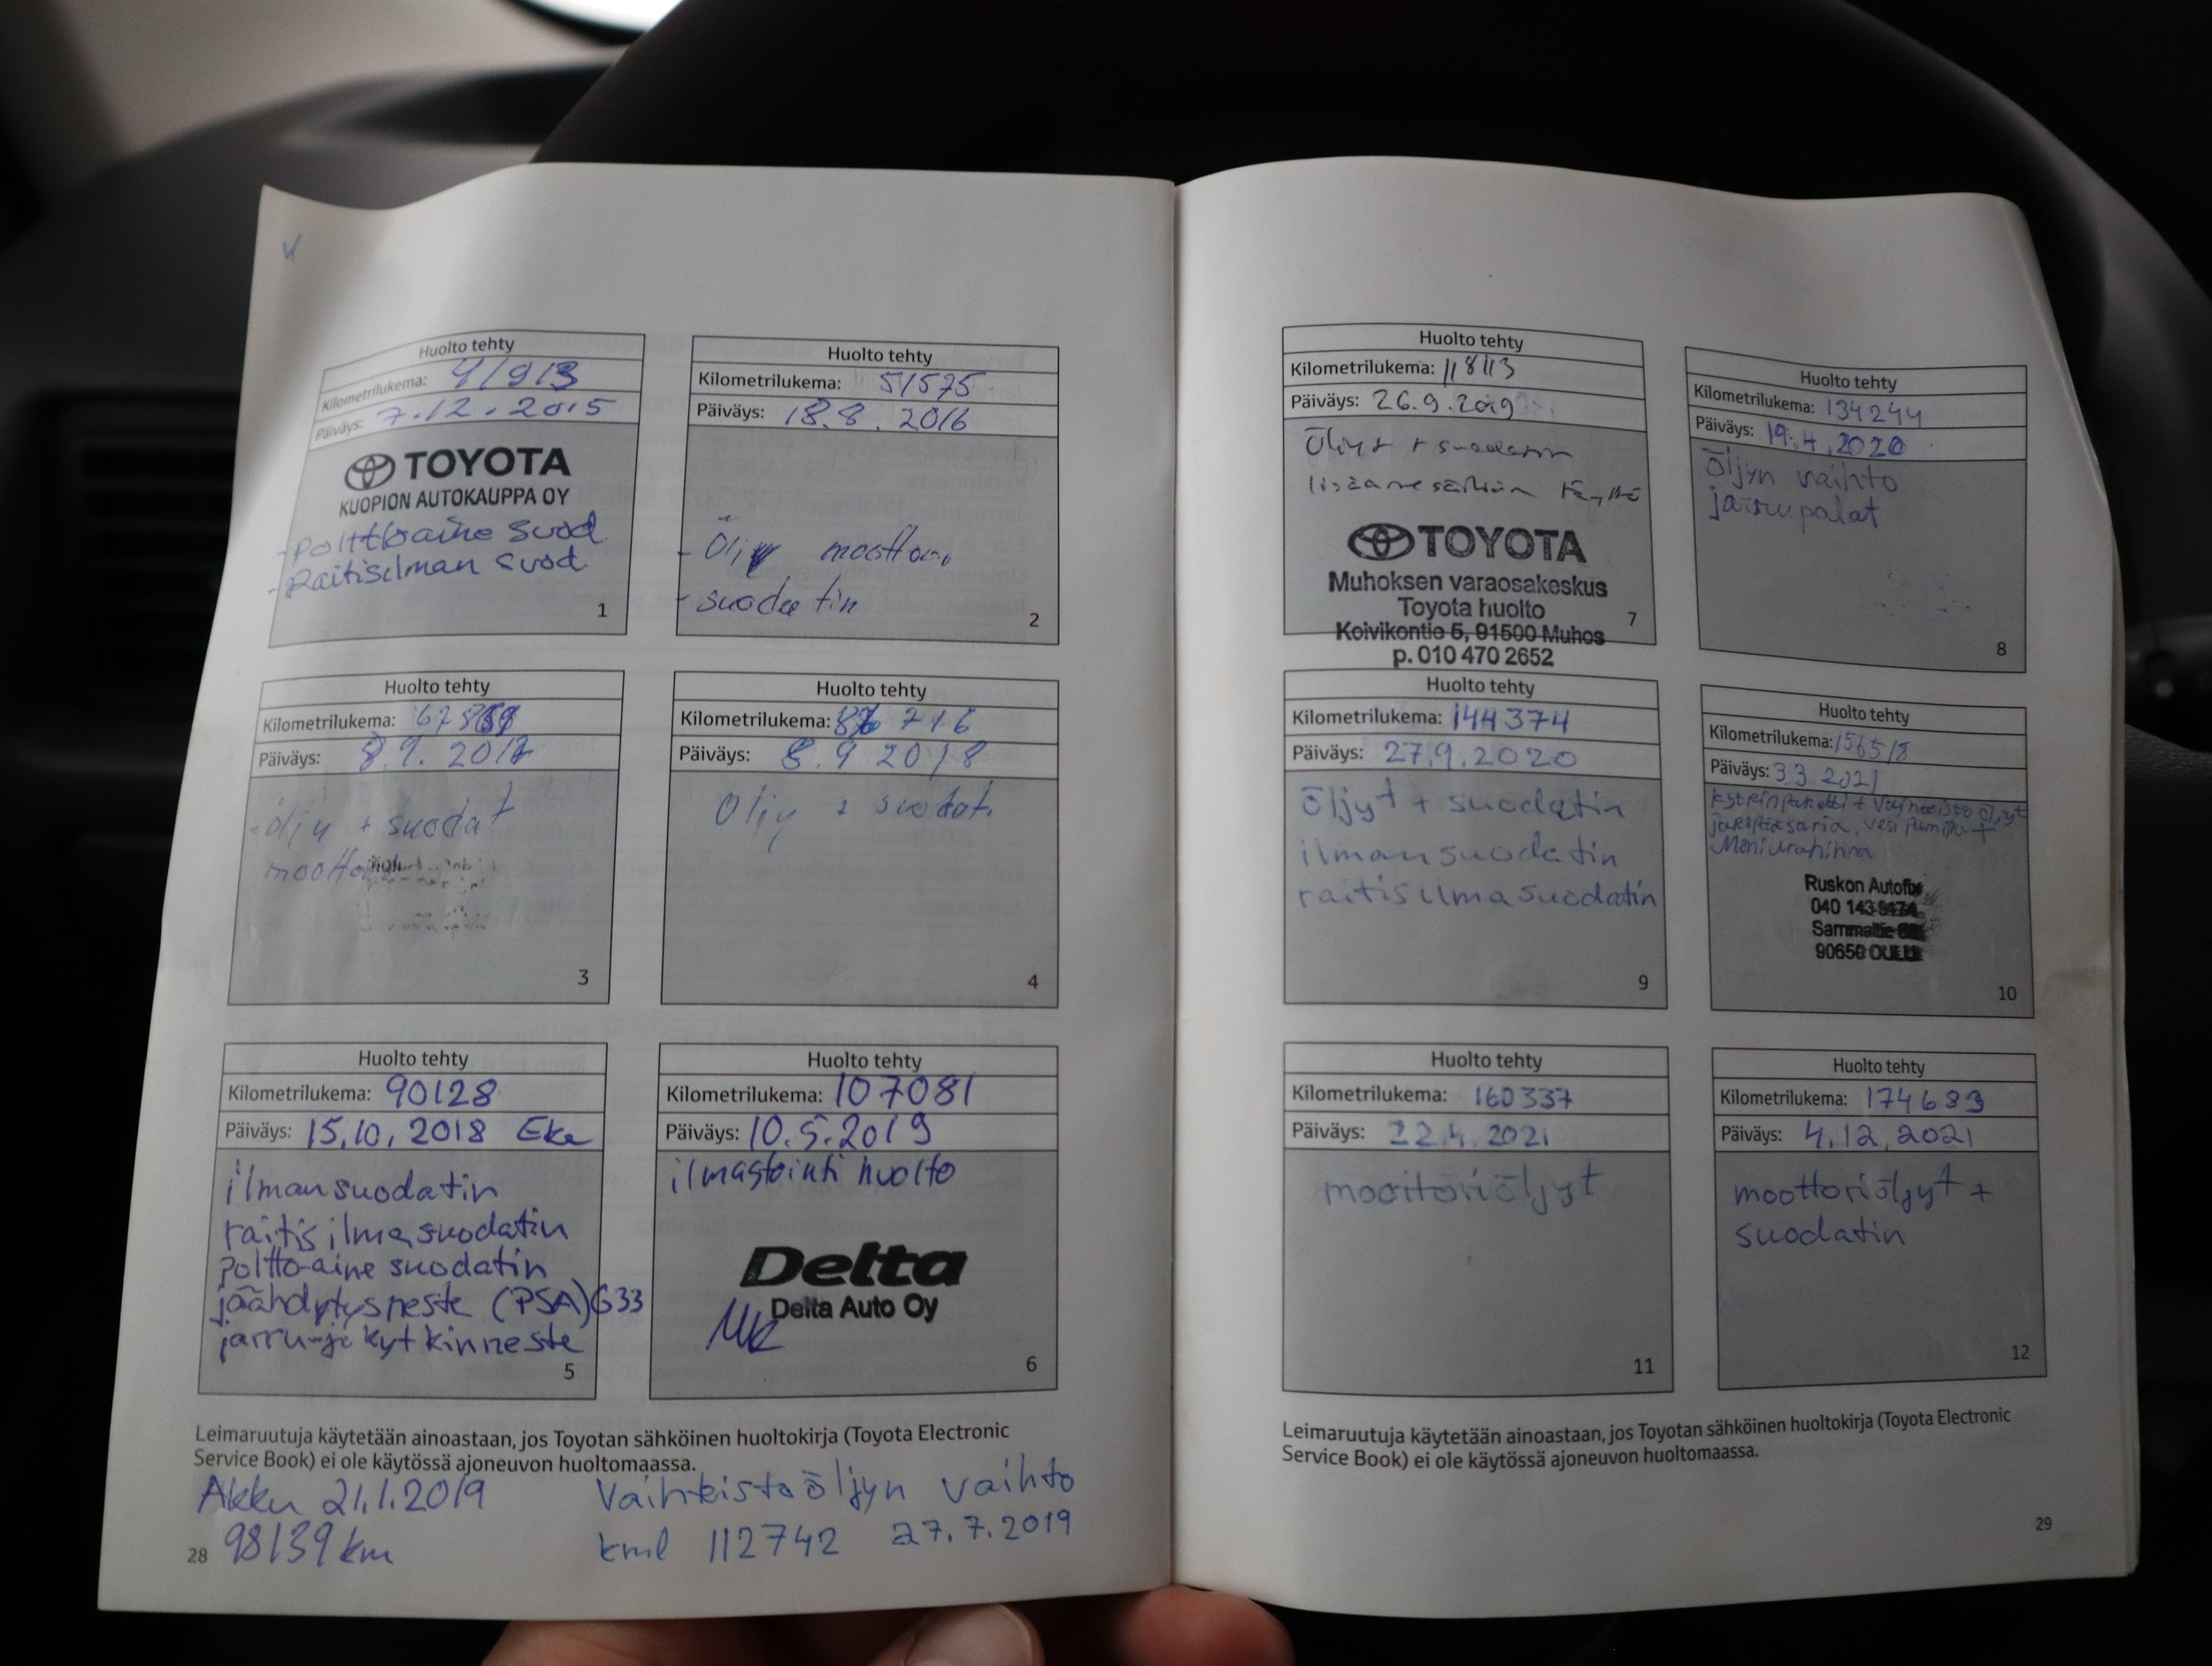 Huolto tehty
Kilometrilukema: 41913
Päiväys: 7.12.2015
TOYOTA
KUOPION AUTOKAUPPA OY
-polttoaine suod.
-Raitisilman suod.
1
Huolto tehty
Kilometrilukema: 51575
Päiväys: 18.8.2016
- Öljy moottori
- suodatin
2
Huolto tehty
Kilometrilukema:
Päiväys: 8.9.2017
-öljy + suodat
3
Huolto tehty
Kilometrilukema:
Päiväys: 8.9 2018
Öljy + suodat.
4
Huolto tehty
Kilometrilukema: 90128
Päiväys: 15.10.2018 Eke
ilmansuodatin
raitisilmasuodatin
poltto-aine suodatin
jäähdytysneste (PSA)G33
jarru-ja kytkinneste
5
Huolto tehty
Kilometrilukema: 107081
Päiväys: 10.5.2019
ilmastointi huolto
Delta
Delta Auto Oy
6
Leimaruutuja käytetään ainoastaan, jos Toyotan sähköinen huoltokirja (Toyota Electronic
Service Book) ei ole käytössä ajoneuvon huoltomaassa.
Akku 21.1.2019
98139 km
Vaihteistoöljyn vaihto
kml 112742 27.7.2019
28
Huolto tehty
Kilometrilukema: 118113
Päiväys: 26.9.2019
Öljyt + suodatin
lisäainesäiliön täyttö
TOYOTA
Muhoksen varaosakeskus
Toyota huolto
Koivikontie 5, 91500 Muhos
p. 010 470 2652
7
Huolto tehty
Kilometrilukema: 134244
Päiväys: 19.4.2020
öljyn vaihto
jarrupalat
8
Huolto tehty
Kilometrilukema: 144374
Päiväys: 27.9.2020
öljyt + suodatin
ilmansuodatin
raitisilmasuodatin
9
Huolto tehty
Kilometrilukema: 156518
Päiväys: 3.3.2021
kytkinpaketti + vaihteisto öljyt
jakopääsarja, vesipumppu +
Moniurahihna
Ruskon Autofix
040 143
90650 OULU
10
Huolto tehty
Kilometrilukema: 160337
Päiväys: 22.4.2021
moottoriöljyt
11
Huolto tehty
Kilometrilukema: 174683
Päiväys: 4.12.2021
moottoriöljyt +
suodatin
12
Leimaruutuja käytetään ainoastaan, jos Toyotan sähköinen huoltokirja (Toyota Electronic
Service Book) ei ole käytössä ajoneuvon huoltomaassa.
29